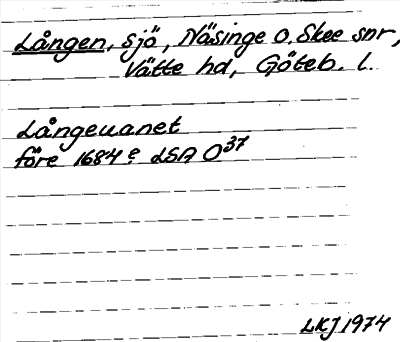 Lången, sjö, Näsinge o. Skee snr,
Vätte hd, Göteb. l.
Långeuanet
före 1684 e LSA O37
LKJ 1974